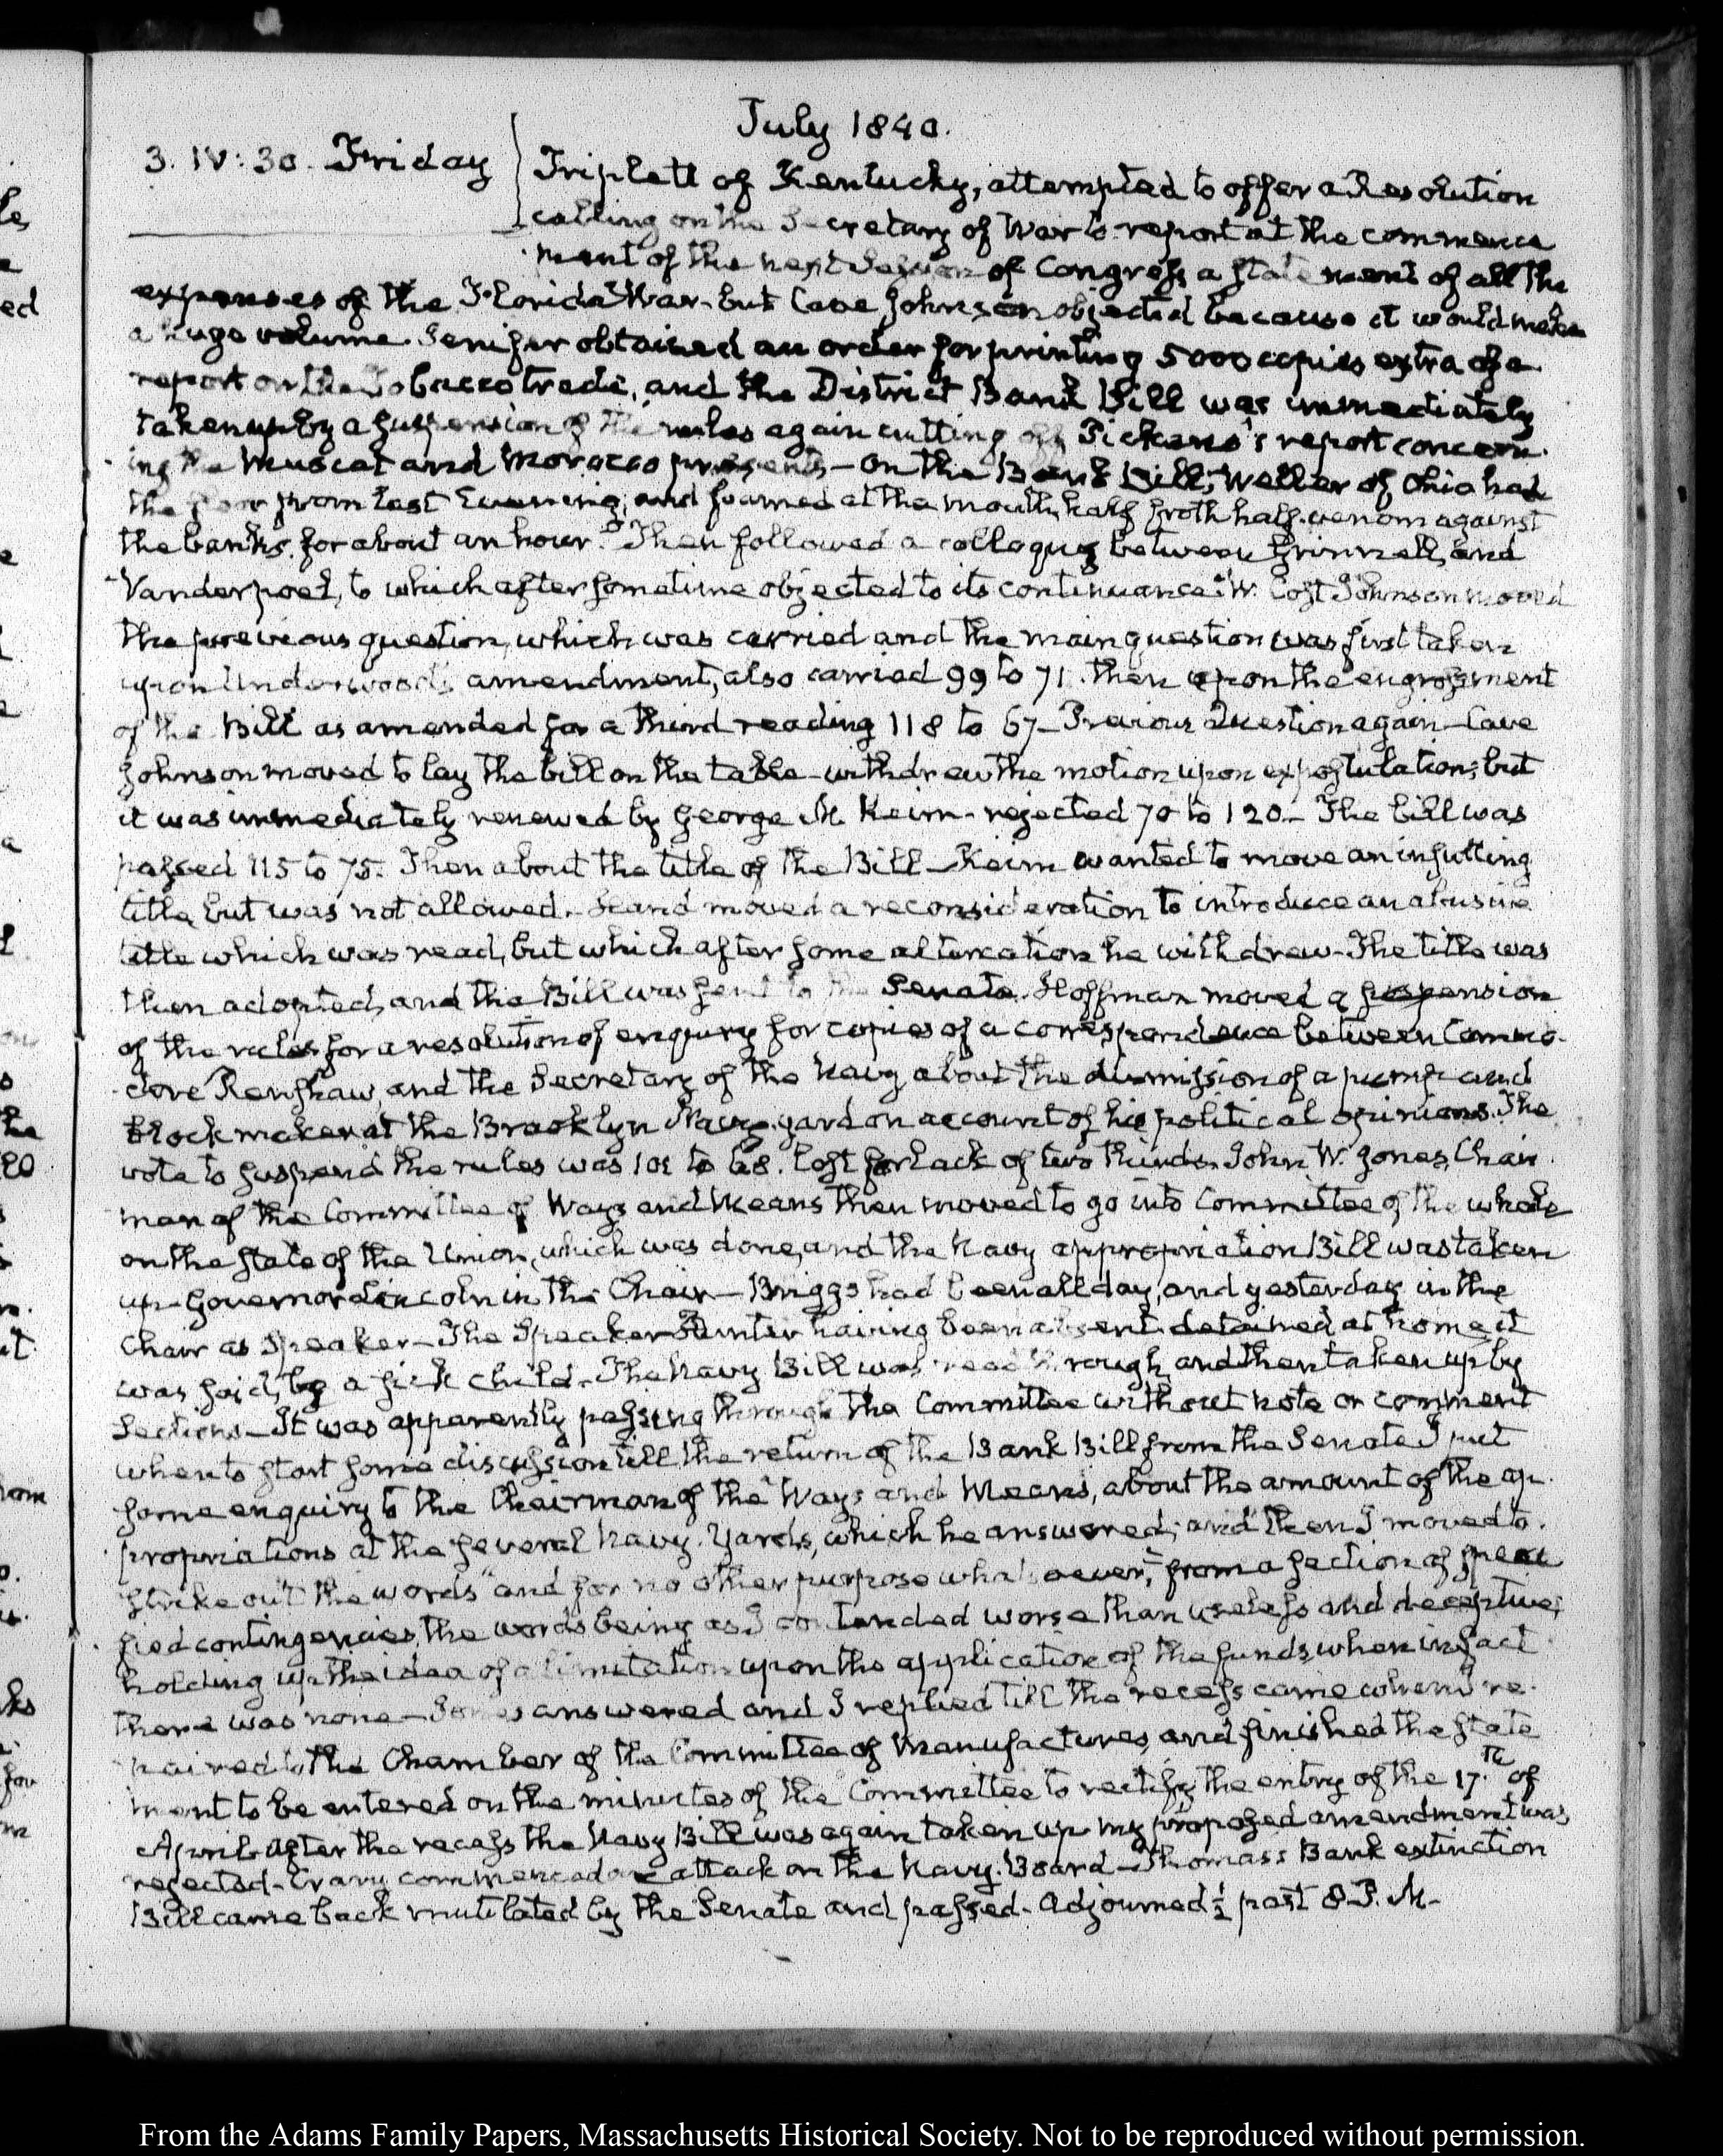 July 1840.
3. IV:30. Friday
Triplett of Kentucky, attempted to offer a Resolution
calling on the Secretary of War to report at the commence
ment of the next Session of Congress a statement of all the
expenses of the Florida War. but Cave Johnson objected because it would make
a huge volume. Jenifer obtained an order for printing 5000 copies extra of a
report on the Tobacco trade, and the District Bank Bill was immediately
taken up by a suspension of the rules again cutting off Pickens's report concern-
ing the Muscat and Morocco presents – On the Bank Bill, Weller of Ohio had
the floor from last Evening, and foamed at the mouth, half froth half venom against
the banks, for about an hour. Then followed a colloquy between Grinnell, and
Vanderpoel, to which after sometime objected to its continuance. W. Cost Johnson moved
the previous question, which was carried and the main question was first taken
upon Underwood's amendment, also carried 99 to 71. then upon the engrossment
of the Bill as amended for a third reading 118 to 67 – Previous Question again – Cave
Johnson moved to lay the bill on the table – withdrew the motion upon expostulation; but
it was immediately renewed by George M. Keim – rejected 70 to 120 – The bill was
passed 115 to 75. Then about the title of the Bill – Keim wanted to move an insulting
title, but was not allowed. Hand moved a reconsideration to introduce an abusive
title which was read, but which after some altercation he withdrew – The title was
then adopted, and the Bill was sent to the Senate. Hoffman moved a suspension
of the rules for a resolution of enquiry for copies of a correspondence between Commo-
dore Renshaw and the Secretary of the Navy about the dismission of a pump and
block maker at the Brooklyn Navy yard on account of his political opinions. The
vote to suspend the rules was 101 to 68. lost for lack of two thirds. John W. Jones, Chair
man of the Committee of Ways and Means then moved to go into Committee of the whole
on the state of the Union, which was done, and the Navy appropriation Bill was taken
up – Governor Lincoln in the Chair – Briggs had been all day, and yesterday in the
Chair as Speaker – The Speaker Hunter having been absent detained at home it
was said, by a sick child – The Navy Bill was read through, and then taken up by
Sections – It was apparently passing through the Committee without note or comment
when to start some discussion till the return of the Bank Bill from the Senate I put
some enquiry to the Chairman of the Ways and Means, about the amount of the ap-
propriations at the several Navy-Yards, which he answered; and then I moved to
strike out the words "and for no other purpose whatsoever," from a section of speci
fied contingencies, the words being as I contended worse than useless and deceptive;
holding up the idea of a limitation upon the application of the funds, when in fact
there was none – Jones answered and I replied till the recess came when I re-
paired to the Chamber of the Committee of Manufactures, and finished the state
ment to be entered on the minutes of the Committee to rectify the entry of the 17.th of
April. After the recess the Navy Bill was again taken up my proposed amendment was
rejected – Crary commenced an attack on the Navy-Board – Thomas's Bank extinction
Bill came back mutilated by the Senate and passed – Adjourned ½ past 8 P.M.
From the Adams Family Papers, Massachusetts Historical Society. Not to be reproduced without permission.